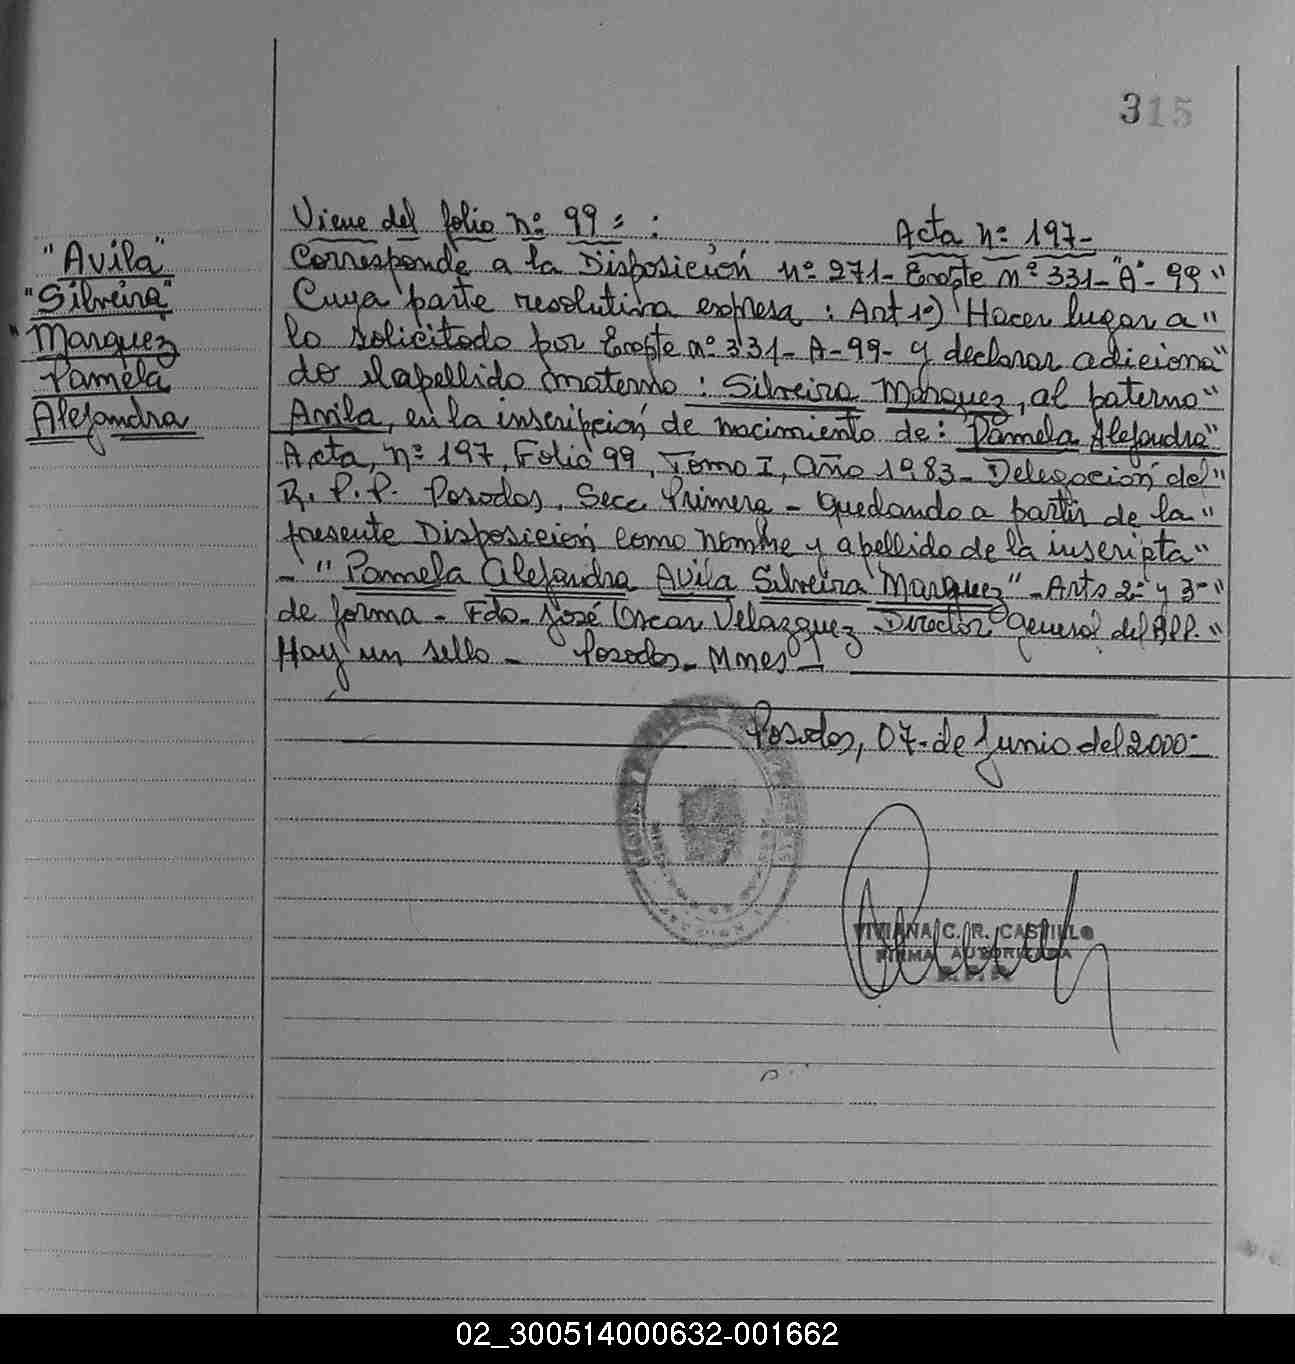 315
Viene del folio nº 99=: Acta nº 197-
"Avila"
"Silveira"
"Marquez
Pamela
Alejandra
Corresponde a la Disposición nº 271- Expte nº 331-"A"-99"
Cuya parte resolutiva expresa: Art 1º) Hacer lugar a"
lo solicitado por Expte nº 331-A-99- y declarar adiciona"
do el apellido materno: Silveira Marquez, al paterno"
Avila, en la inscripción de nacimiento de: Pamela Alejandra"
Acta, nº 197, Folio 99, Tomo I, Año 1983- Delegación del"
R.P.P. Posadas, Secc. Primera - quedando a partir de la"
presente Disposición como nombre y apellido de la inscripta"
- "Pamela Alejandra Avila Silveira Marquez"- Arts 2º y 3º"
de forma- Fdo- José Oscar Velazquez Director General del R.P.P."
Hay un sello- Posadas- Mnes-
Posadas, 07-de Junio del 2000-
VIVIANA C. R. CASTILLO
FIRMA AUTORIZADA
02_300514000632-001662